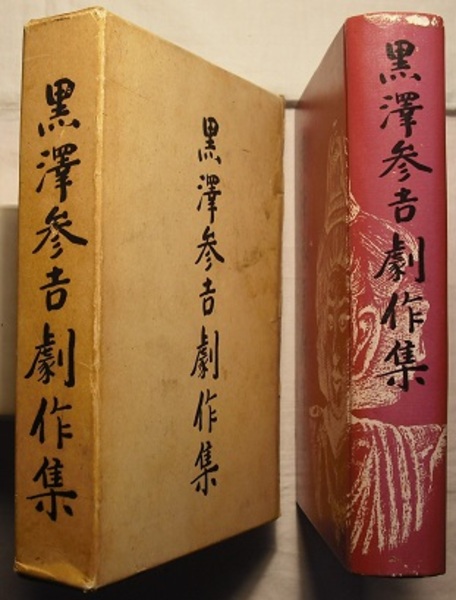 黒澤参吉劇作集
黒澤参吉劇作集
黒澤参吉劇作集